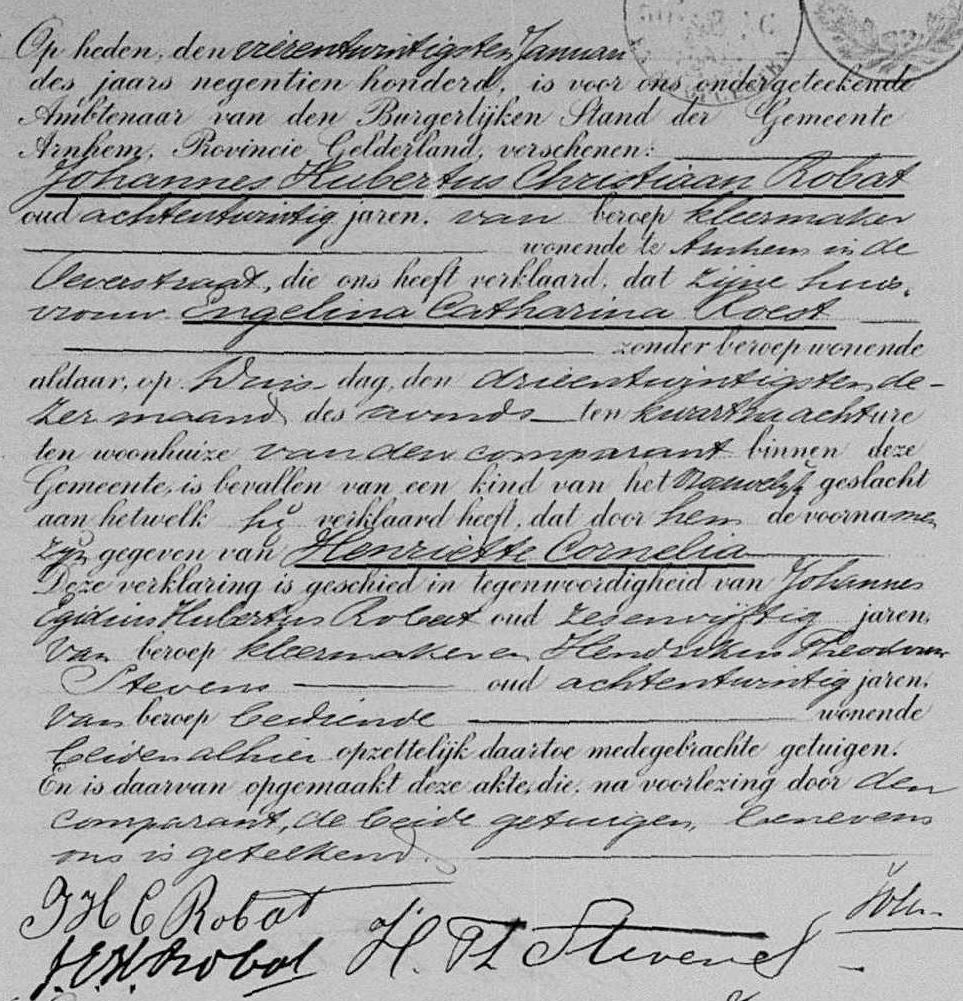 Op heden, den vierentwintigsten Januari
des jaars negentien honderd, is voor ons ondergeteekende
Ambtenaar van den Burgerlijken Stand der Gemeente
Arnhem, Provincie Gelderland, verschenen:
Johannes Hubertus Christiaan Robat
oud achtentwintig jaren, van beroep kleermaker
wonende te Arnhem in de
Oeverstraat, die ons heeft verklaard, dat zijne huis-
vrouw Engelina Catharina Roest
zonder beroep wonende
aldaar, op Dins dag, den drieentwintigsten de-
zer maand des avonds ten kwart na acht ure
ten woonhuize van den comparant binnen deze
Gemeente, is bevallen van een kind van het geslacht
aan hetwelk hij verklaard heeft, dat door hem de voorname
zijn gegeven van Henriette Cornelia
Deze verklaring is geschied in tegenwoordigheid van Johannes
Egidius Hubertus Robat oud zesenvijftig jaren,
van beroep kleermaker en Hendrikus Theodorus
Stevens oud achtentwintig jaren,
van beroep bediende wonende
beiden alhier opzettelijk daartoe medegebrachte getuigen.
En is daarvan opgemaakt deze akte, die, na voorlezing door den
comparant, de beide getuigen, benevens
ons is geteekend.
J H C Robat
J. E. H. Robat H. Th Stevens